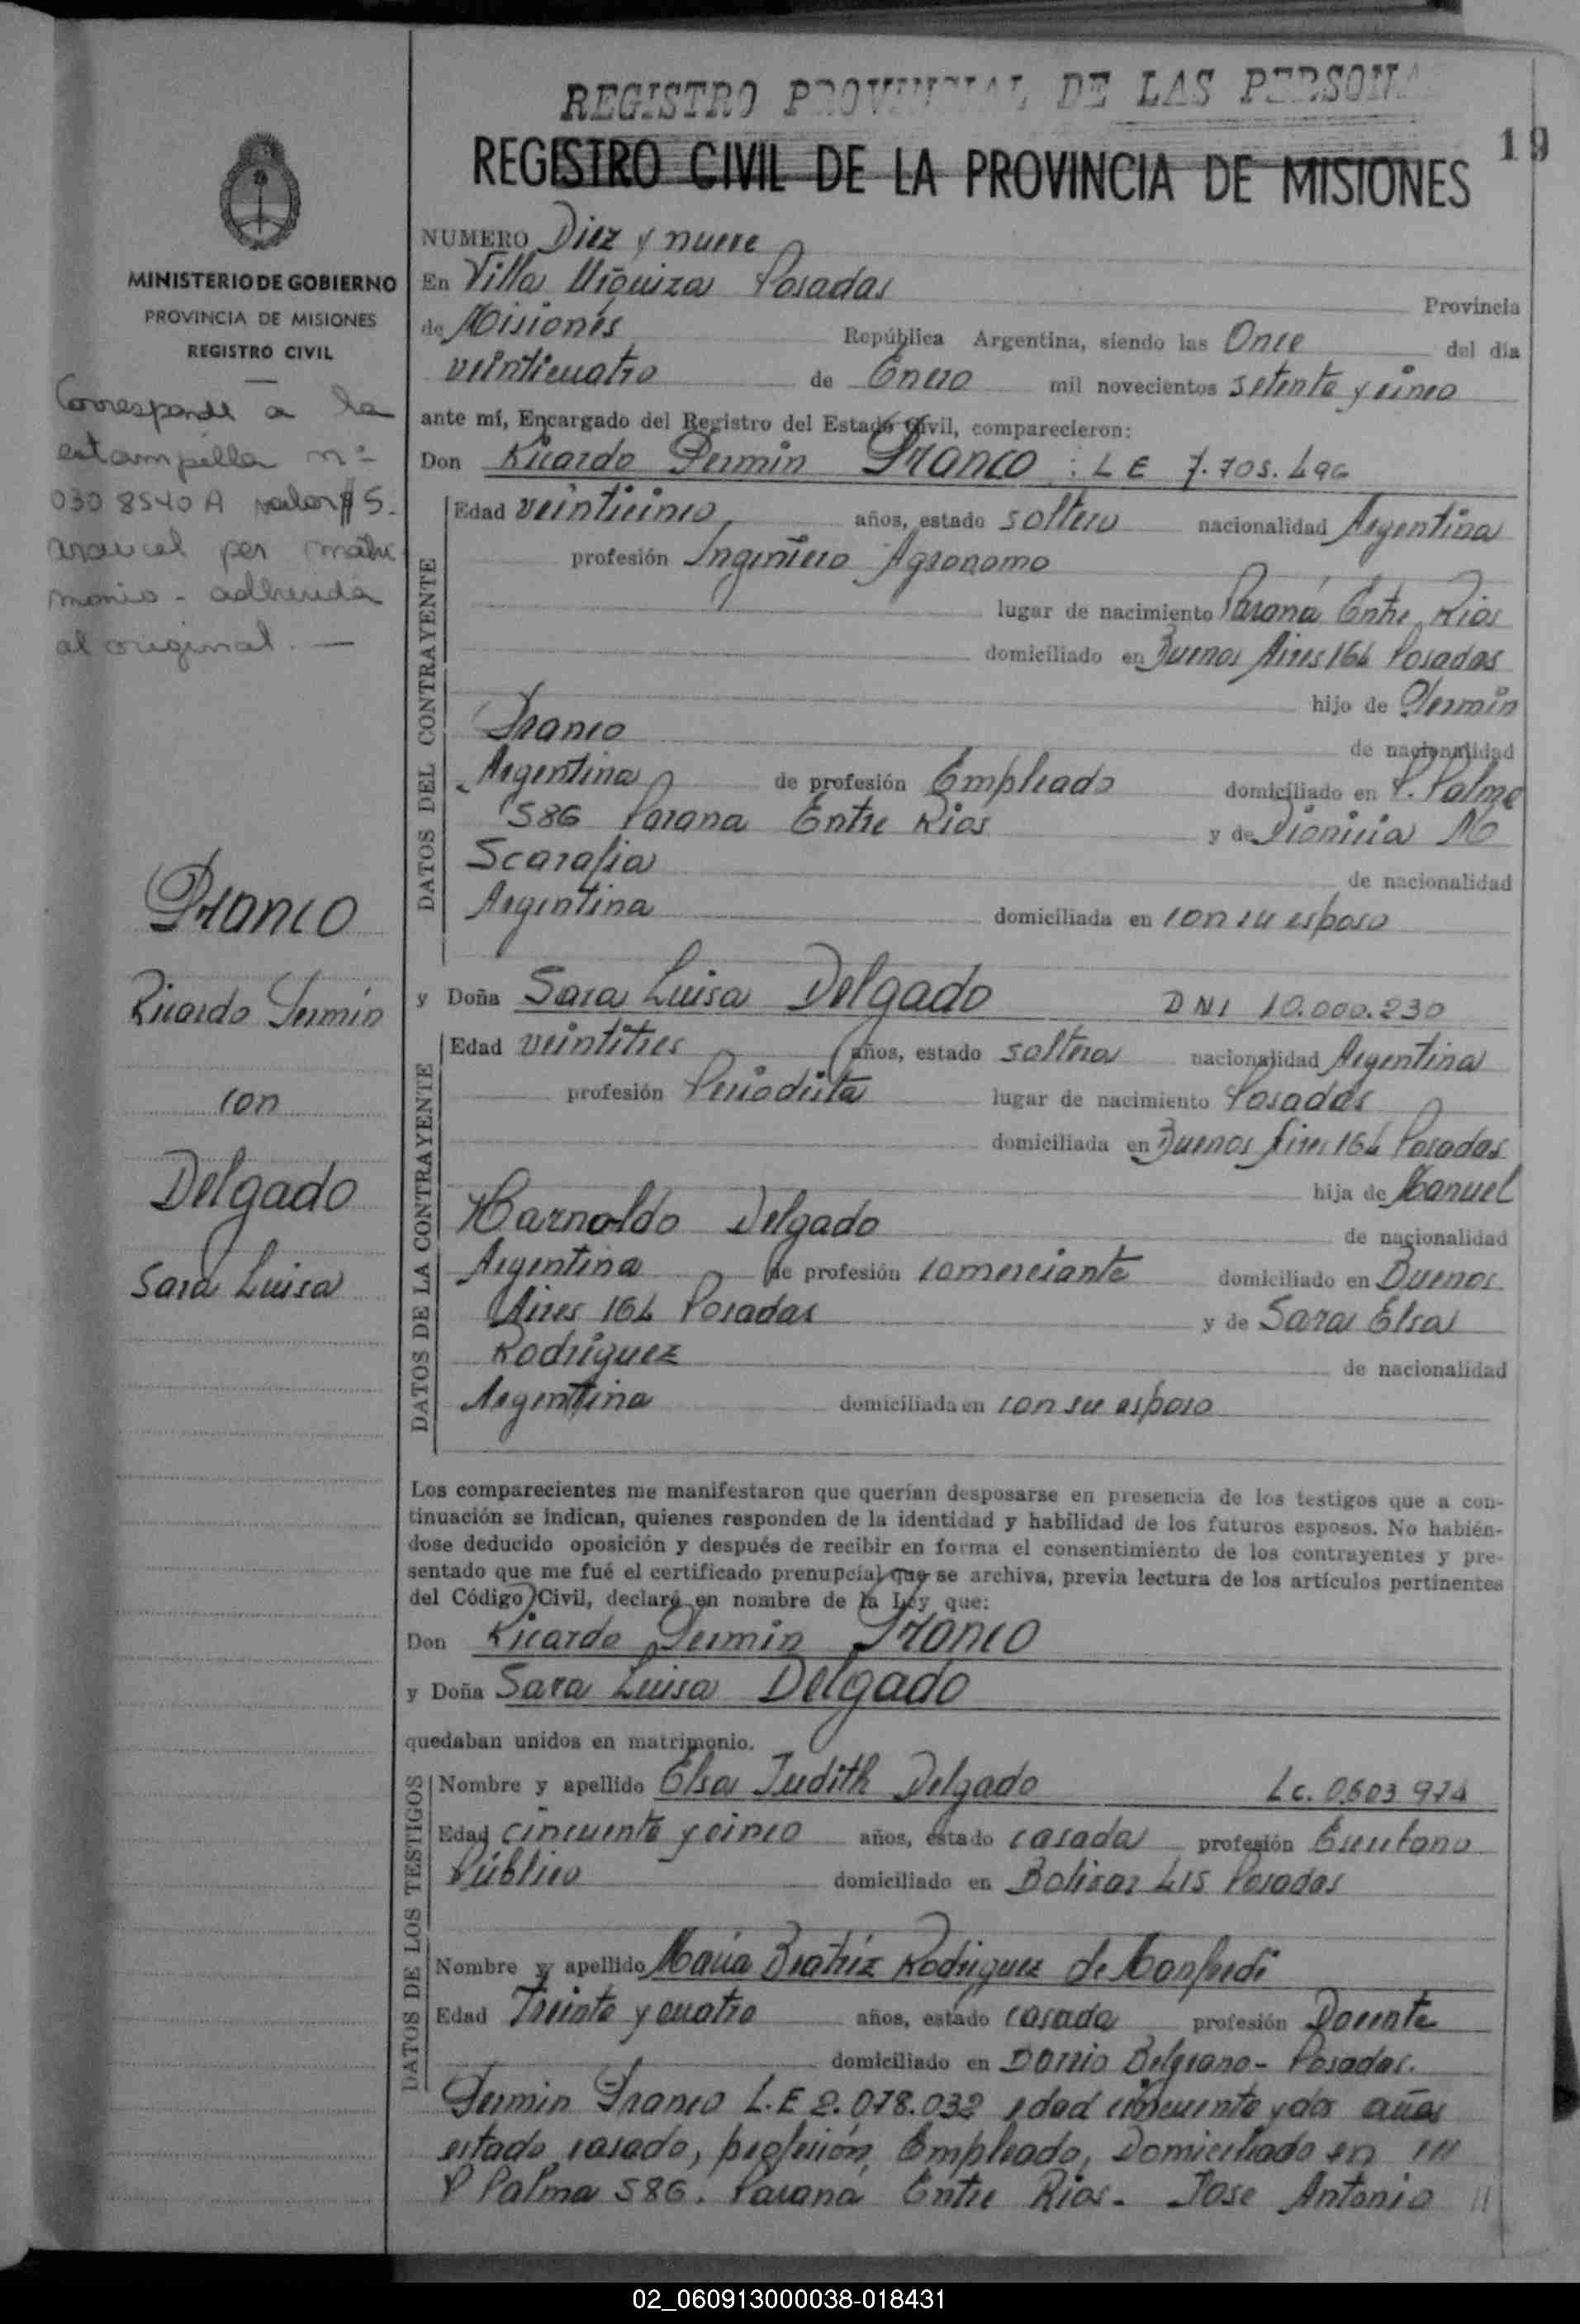 REGISTRO PROVINCIAL DE LAS PERSONAS
REGISTRO CIVIL DE LA PROVINCIA DE MISIONES
19
MINISTERIO DE GOBIERNO
PROVINCIA DE MISIONES
REGISTRO CIVIL
Corresponde a la
estampilla nº
0308540A valor $ 5.
arancel por matri
monio - adherida
al original. —
Franco
Ricardo Fermin
con
Delgado
Sara Luisa
NUMERO Diez y nueve
En Villa Urquiza Posadas Provincia
de Misiones República Argentina, siendo las Once del día
veinticuatro de Enero mil novecientos setenta y cinco
ante mí, Encargado del Registro del Estado Civil, comparecieron:
Don Ricardo Fermin Franco : L E 7.705.496
DATOS DEL CONTRAYENTE
Edad veinticinco años, estado soltero nacionalidad Argentina
profesión Ingeniero Agronomo
lugar de nacimiento Paraná Entre Rios
domiciliado en Buenos Aires 164 Posadas
hijo de Fermin
Franco de nacionalidad
Argentina de profesión Empleado domiciliado en P. Palma
586 Parana Entre Rios y de Dionicia M
Scarafia de nacionalidad
Argentina domiciliada en con su esposo
y Doña Sara Luisa Delgado DNI 10.000.230
DATOS DE LA CONTRAYENTE
Edad veintitres años, estado soltera nacionalidad Argentina
profesión Periodista lugar de nacimiento Posadas
domiciliada en Buenos Aires 164 Posadas
hija de Manuel
Harnoldo Delgado de nacionalidad
Argentina de profesión comerciante domiciliado en Buenos
Aires 164 Posadas y de Sara Elsa
Rodriguez de nacionalidad
Argentina domiciliada en con su esposo
Los comparecientes me manifestaron que querían desposarse en presencia de los testigos que a con-
tinuación se indican, quienes responden de la identidad y habilidad de los futuros esposos. No habién-
dose deducido oposición y después de recibir en forma el consentimiento de los contrayentes y pre-
sentado que me fué el certificado prenupcial que se archiva, previa lectura de los artículos pertinentes
del Código Civil, declaré en nombre de la Ley que:
Don Ricardo Fermin Franco
y Doña Sara Luisa Delgado
quedaban unidos en matrimonio.
DATOS DE LOS TESTIGOS
Nombre y apellido Elsa Judith Delgado Lc. 0.603 974
Edad cincuenta y cinco años, estado casada profesión Escribano
Público domiciliado en Bolivar 415 Posadas
Nombre y apellido María Beatríz Rodriguez de Monfredi
Edad Treinta y cuatro años, estado casada profesión Docente
domiciliado en Barrio Belgrano - Posadas.
Fermin Franco L.E 2.078.032 edad cincuenta y dos años
estado casado, profesión, Empleado, Domiciliado en ///
P Palma 586. Paraná Entre Rios. Jose Antonio //
02_060913000038-018431